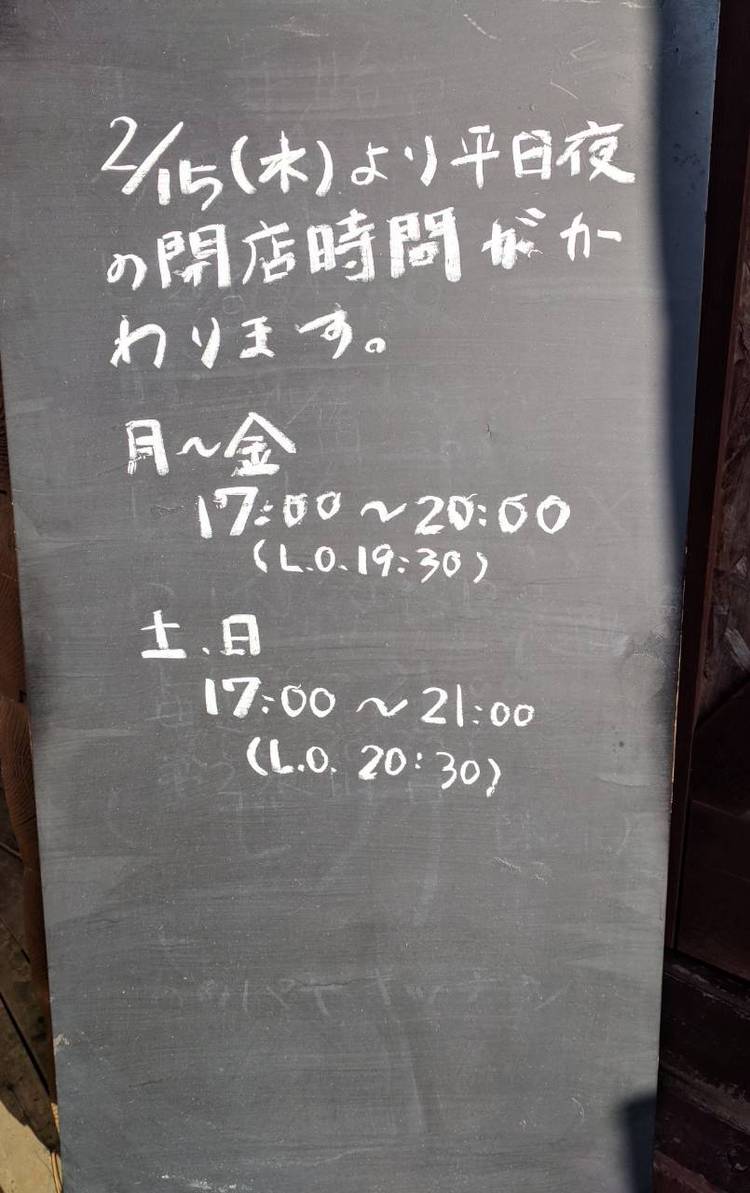 2/15(木)より平日夜
の閉店時間がか
わります。
月〜金
17:00〜20:00
(L.O.19:30)
土、日
17:00〜21:00
(L.O. 20:30)